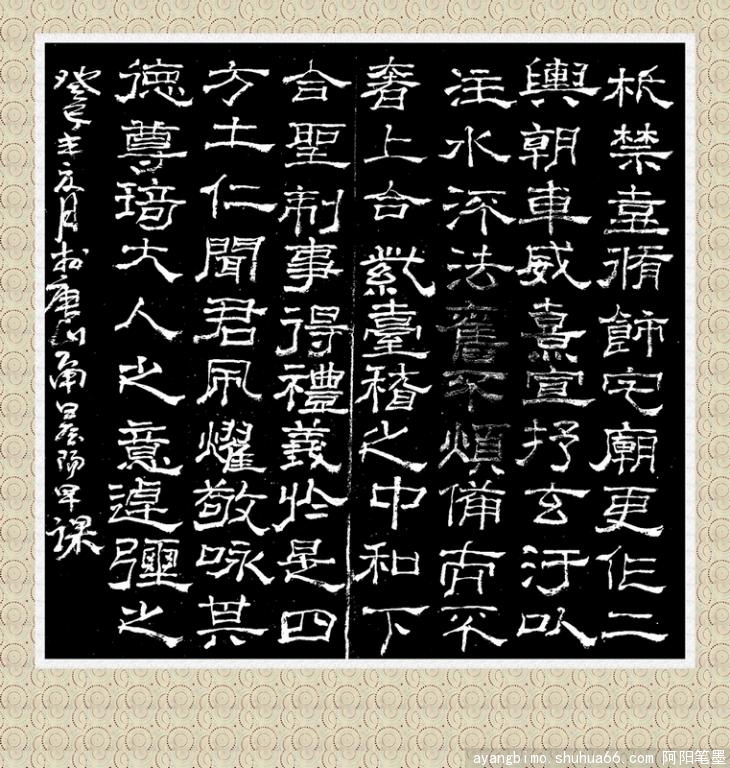 柉禁壺脩飾宅廟更作二
輿朝車威熹宣抒玄汙以
注水流法舊不煩備而不
奢上合紫臺稽之中和下
合聖制事得禮義於是四
方土仁聞君風燿敬咏其
德尊琦大人之意逴彌之
癸巳年六月於唐山南阿陽早課
ayangbimo.shuhua66.com|阿阳笔墨